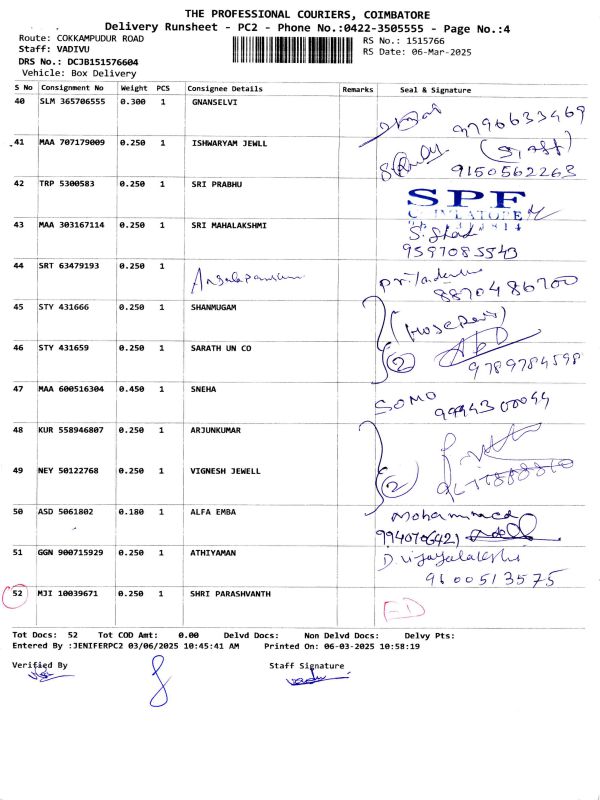 THE PROFESSIONAL COURIERS, COIMBATORE
Delivery Runsheet - PC2 - Phone No.:0422-3505555 - Page No.:4
Route: COKKAMPUDUR ROAD
RS No.: 1515766
Staff: VADIVU
RS Date: 06-Mar-2025
DRS No.: DCJB151576604
Vehicle: Box Delivery
S No Consignment No Weight PCS Consignee Details Remarks Seal & Signature
40 SLM 365706555 0.300 1 GNANSELVI
9796633469
41 MAA 707179009 0.250 1 ISHWARYAM JEWLL
(Staff)
9150562263
42 TRP 5300583 0.250 1 SRI PRABHU
SPF
COIMBATORE
43 MAA 303167114 0.250 1 SRI MAHALAKSHMI
9597085543
44 SRT 63479193 0.250 1
8870486700
45 STY 431666 0.250 1 SHANMUGAM
46 STY 431659 0.250 1 SARATH UN CO
2
9789784598
47 MAA 600516304 0.450 1 SNEHA
SOMO
9994300099
48 KUR 558946807 0.250 1 ARJUNKUMAR
49 NEY 50122768 0.250 1 VIGNESH JEWELL
2
50 ASD 5061802 0.180 1 ALFA EMBA
Mohammed
51 GGN 900715929 0.250 1 ATHIYAMAN
D Vijayalakshmi
9600513575
52 MJI 10039671 0.250 1 SHRI PARASHVANTH
ED
Tot Docs: 52 Tot COD Amt: 0.00 Delvd Docs: Non Delvd Docs: Delvy Pts:
Entered By :JENIFERPC2 03/06/2025 10:45:41 AM Printed On: 06-03-2025 10:58:19
Verified By Staff Signature